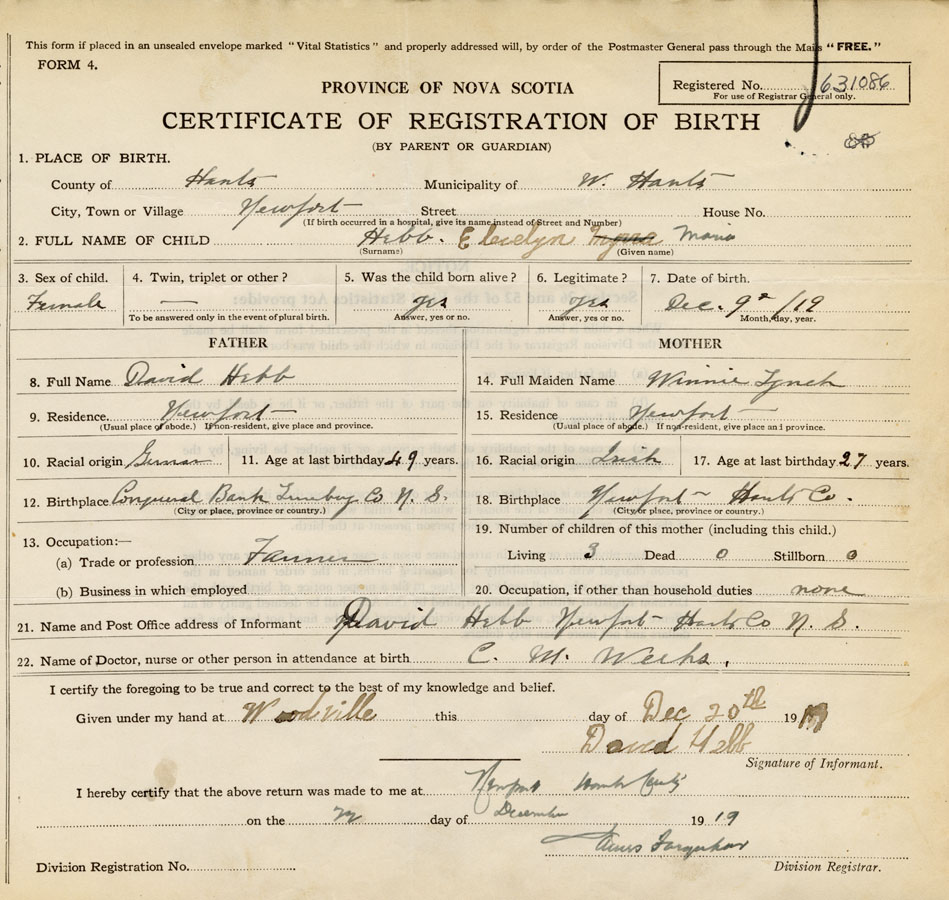 This form if placed in an unsealed envelope marked "Vital Statistics" and properly addressed will, by order of the Postmaster General pass through the Mails "FREE."
FORM 4.
Registered No. 631086
For use of Registrar General only.
PROVINCE OF NOVA SCOTIA
CERTIFICATE OF REGISTRATION OF BIRTH
(BY PARENT OR GUARDIAN)
1. PLACE OF BIRTH.
County of Hants Municipality of W. Hants
City, Town or Village Newport Street House No.
(If birth occurred in a hospital, give its name instead of Street and Number)
2. FULL NAME OF CHILD Hebb. Marie
(Surname) (Given name)
3. Sex of child. 4. Twin, triplet or other? 5. Was the child born alive? 6. Legitimate? 7. Date of birth.
Female — yes yes Dec. 9 /19
To be answered only in the event of plural birth. Answer, yes or no. Answer, yes or no. Month, day, year.
FATHER MOTHER
8. Full Name David Hebb 14. Full Maiden Name Winnie Lynch
9. Residence. Newport 15. Residence Newport
(Usual place of abode.) If non-resident, give place and province. (Usual place of abode.) If non-resident, give place and province.
10. Racial origin German 11. Age at last birthday 49 years. 16. Racial origin Irish 17. Age at last birthday 27 years.
12. Birthplace Conqueral Bank Lunebug Co N. S. 18. Birthplace Newport Hants Co.
(City or place, province or country.) (City or place, province or country.)
13. Occupation:— 19. Number of children of this mother (including this child.)
(a) Trade or profession Farmer Living 3 Dead 0 Stillborn 0
(b) Business in which employed 20. Occupation, if other than household duties none
21. Name and Post Office address of Informant David Hebb Newport Hants Co N. S.
22. Name of Doctor, nurse or other person in attendance at birth C. M. Weeks.
I certify the foregoing to be true and correct to the best of my knowledge and belief.
Given under my hand at Woodville this day of Dec 20th 19
David Hebb
Signature of Informant.
I hereby certify that the above return was made to me at Newport Hants County
on the 22 day of December 19 19
Farquhar
Division Registration No. Division Registrar.